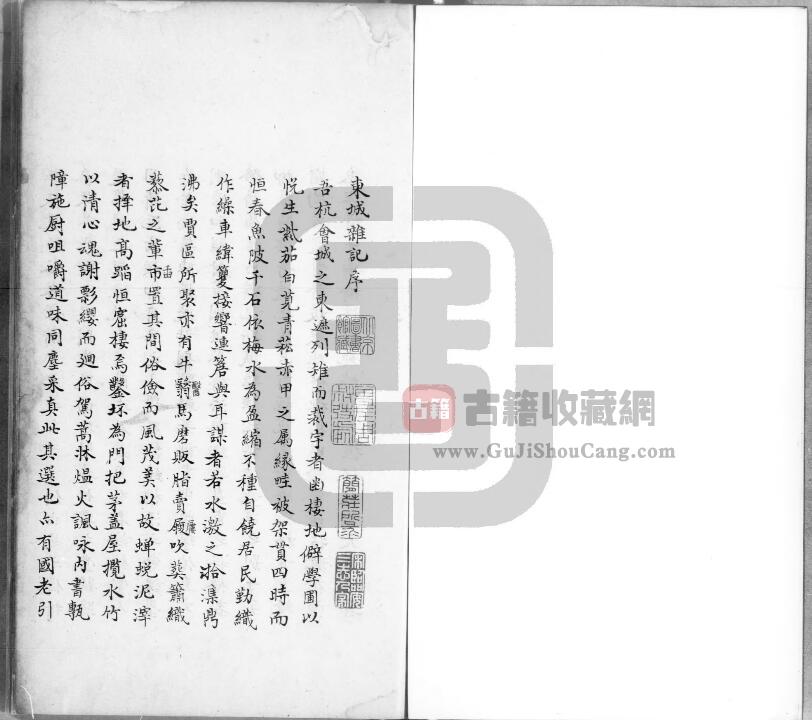 東城雜記序
吾杭會城之東遮列雉而裁宇者幽棲地僻學圃以
悅生紫茄白莧青菘赤甲之属緣畦被架貫四時而
恒春魚陂千石依梅水為盈縮不種自饒居民勤織
作繰車緯籆接響連簷與耳謀者若水激之湁潗鼎
沸矣賈區所聚亦有牛醫馬磨販脂賣履吹簫織
之輩市置其間俗儉而風茂美以故蟬蛻泥滓
者擇地高蹈恒窟棲焉鑿坏為門把茅蓋屋攬水竹
以清心魂謝影纓而廻俗駕蒿牀煴火諷咏內書甎
障施厨咀嚼道味同塵采真此其選也亦有國老引
古籍
古籍收藏網
www.GuJiShouCang.com